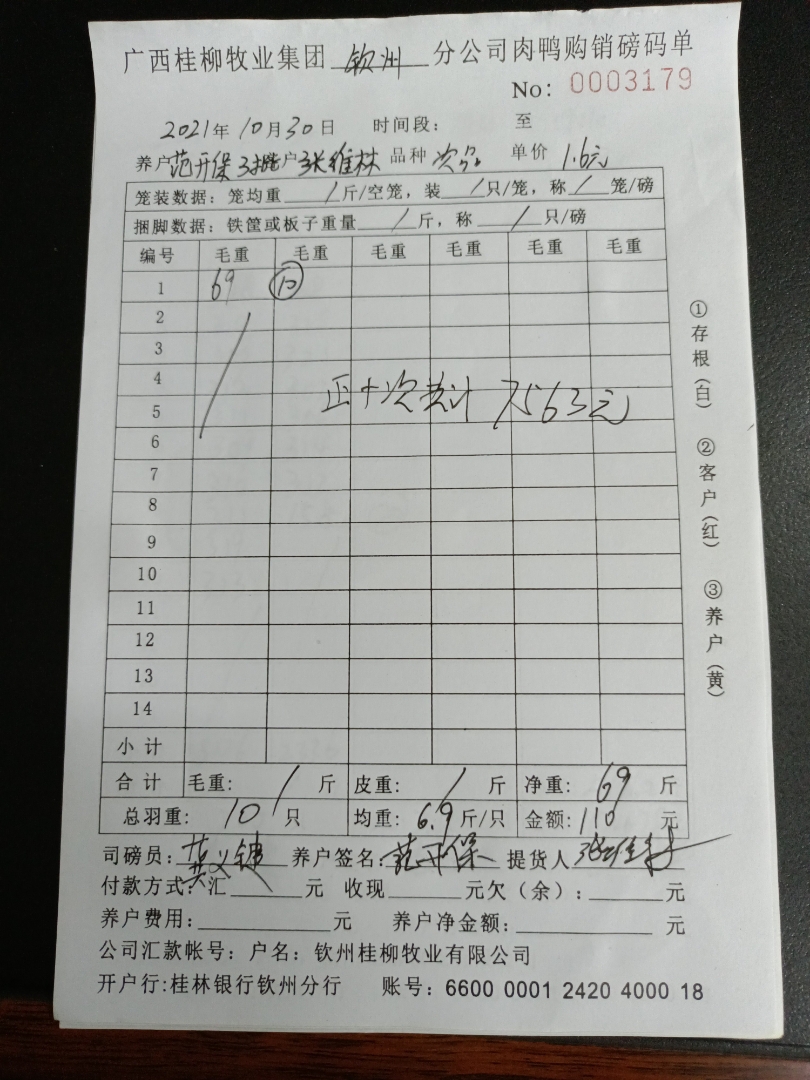 广西桂柳牧业集团 钦州 分公司肉鸭购销磅码单
No: 0003179
2021年10月30日 时间段: 至
养户 范开保 户 张维林 品种 次品 单价 1.6元
笼装数据: 笼均重 / 斤/空笼, 装 / 只/笼, 称 / 笼/磅
捆脚数据: 铁筐或板子重量 / 斤, 称 / 只/磅
编号 毛重 毛重 毛重 毛重 毛重 毛重
1 69 ⑩
2
3
4
正+次共计 7563元
5
6
7
8
9
10
11
12
13
14
小计
合计 毛重: / 斤 皮重: / 斤 净重: 69 斤
总羽重: 10 只 均重: 6.9 斤/只 金额: 110 元
司磅员: 养户签名: 范开保 提货人
付款方式: 汇 元 收现 元欠(余): 元
养户费用: 元 养户净金额: 元
公司汇款帐号: 户名: 钦州桂柳牧业有限公司
开户行:桂林银行钦州分行 账号: 6600 0001 2420 4000 18
①存根(白) ②客户(红) ③养户(黄)